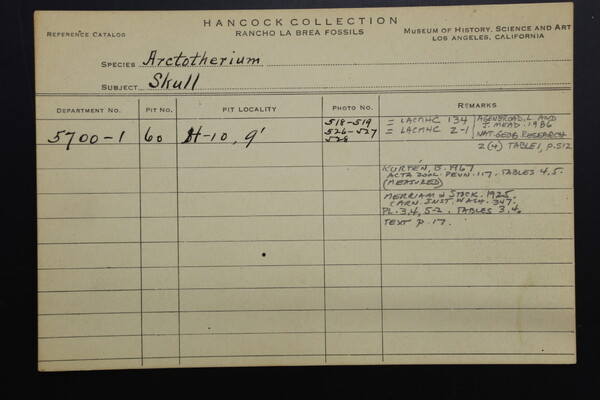 HANCOCK COLLECTION
REFERENCE CATALOG
RANCHO LA BREA FOSSILS
MUSEUM OF HISTORY, SCIENCE AND ART
LOS ANGELES, CALIFORNIA
SPECIES Arctotherium
SUBJECT Skull
DEPARTMENT NO. PIT NO. PIT LOCALITY PHOTO NO. REMARKS
5700-1 60 H-10, 9' 518-519
526-527
528
= LACMHC 134
= LACMHC Z-1
AGENBROAD, L AND
J. MEAD. 1986
NAT. GEOG. RESEARCH
2(4) TABLE 1, p.512
KURTÉN, B. 1967
ACTA ZOOL. FENN. 117. TABLES 4,5.
(MEASURED)
MERRIAM & STOCK. 1925.
CARN. INST. WASH. 347.
PL. 3,4, 5-2. TABLES 3,4.
TEXT p. 17.